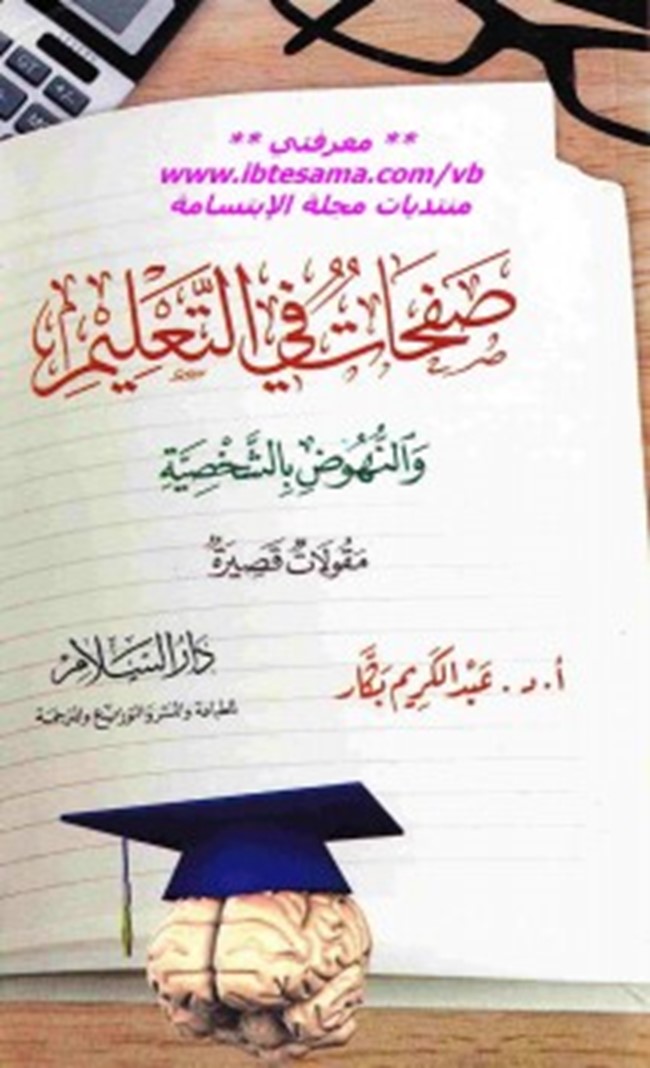 ** معرفتي **
www.ibtesama.com/vb
منتديات مجلة الإبتسامة
صَفَحَاتٌ فِي التَّعْلِيْمِ
وَالنُّهُوْضِ بِالشَّخْصِيَّةِ
مَقُولَاتٌ قَصِيرَةٌ
أ.د. عَبْدُ الكَرِيم بَكَّار
دَارُ السَّلَامِ
للطباعة والنشر والتوزيع والترجمة